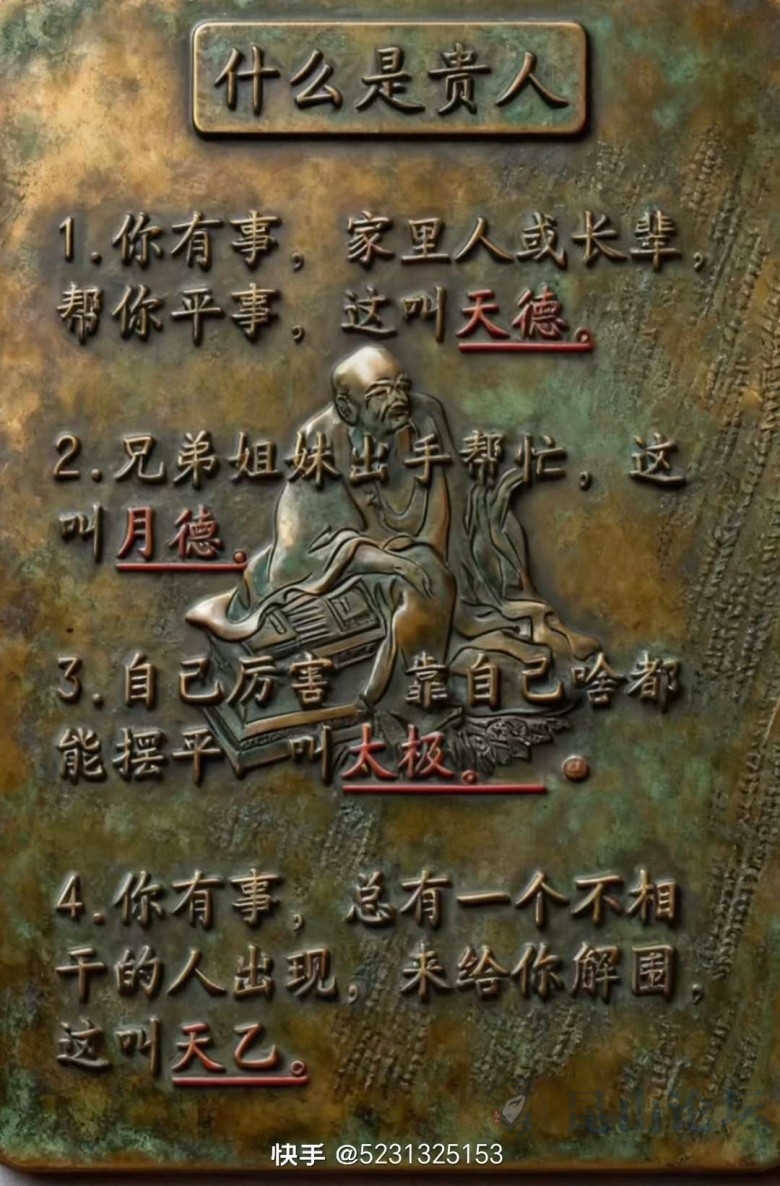 什么是贵人
1.你有事，家里人或长辈，
帮你平事，这叫天德。
2.兄弟姐妹出手帮忙，这
叫月德。
3.自己厉害 靠自己啥都
能摆平 叫太极。
4.你有事，总有一个不相
干的人出现，来给你解围，
这叫天乙。
快手 @5231325153